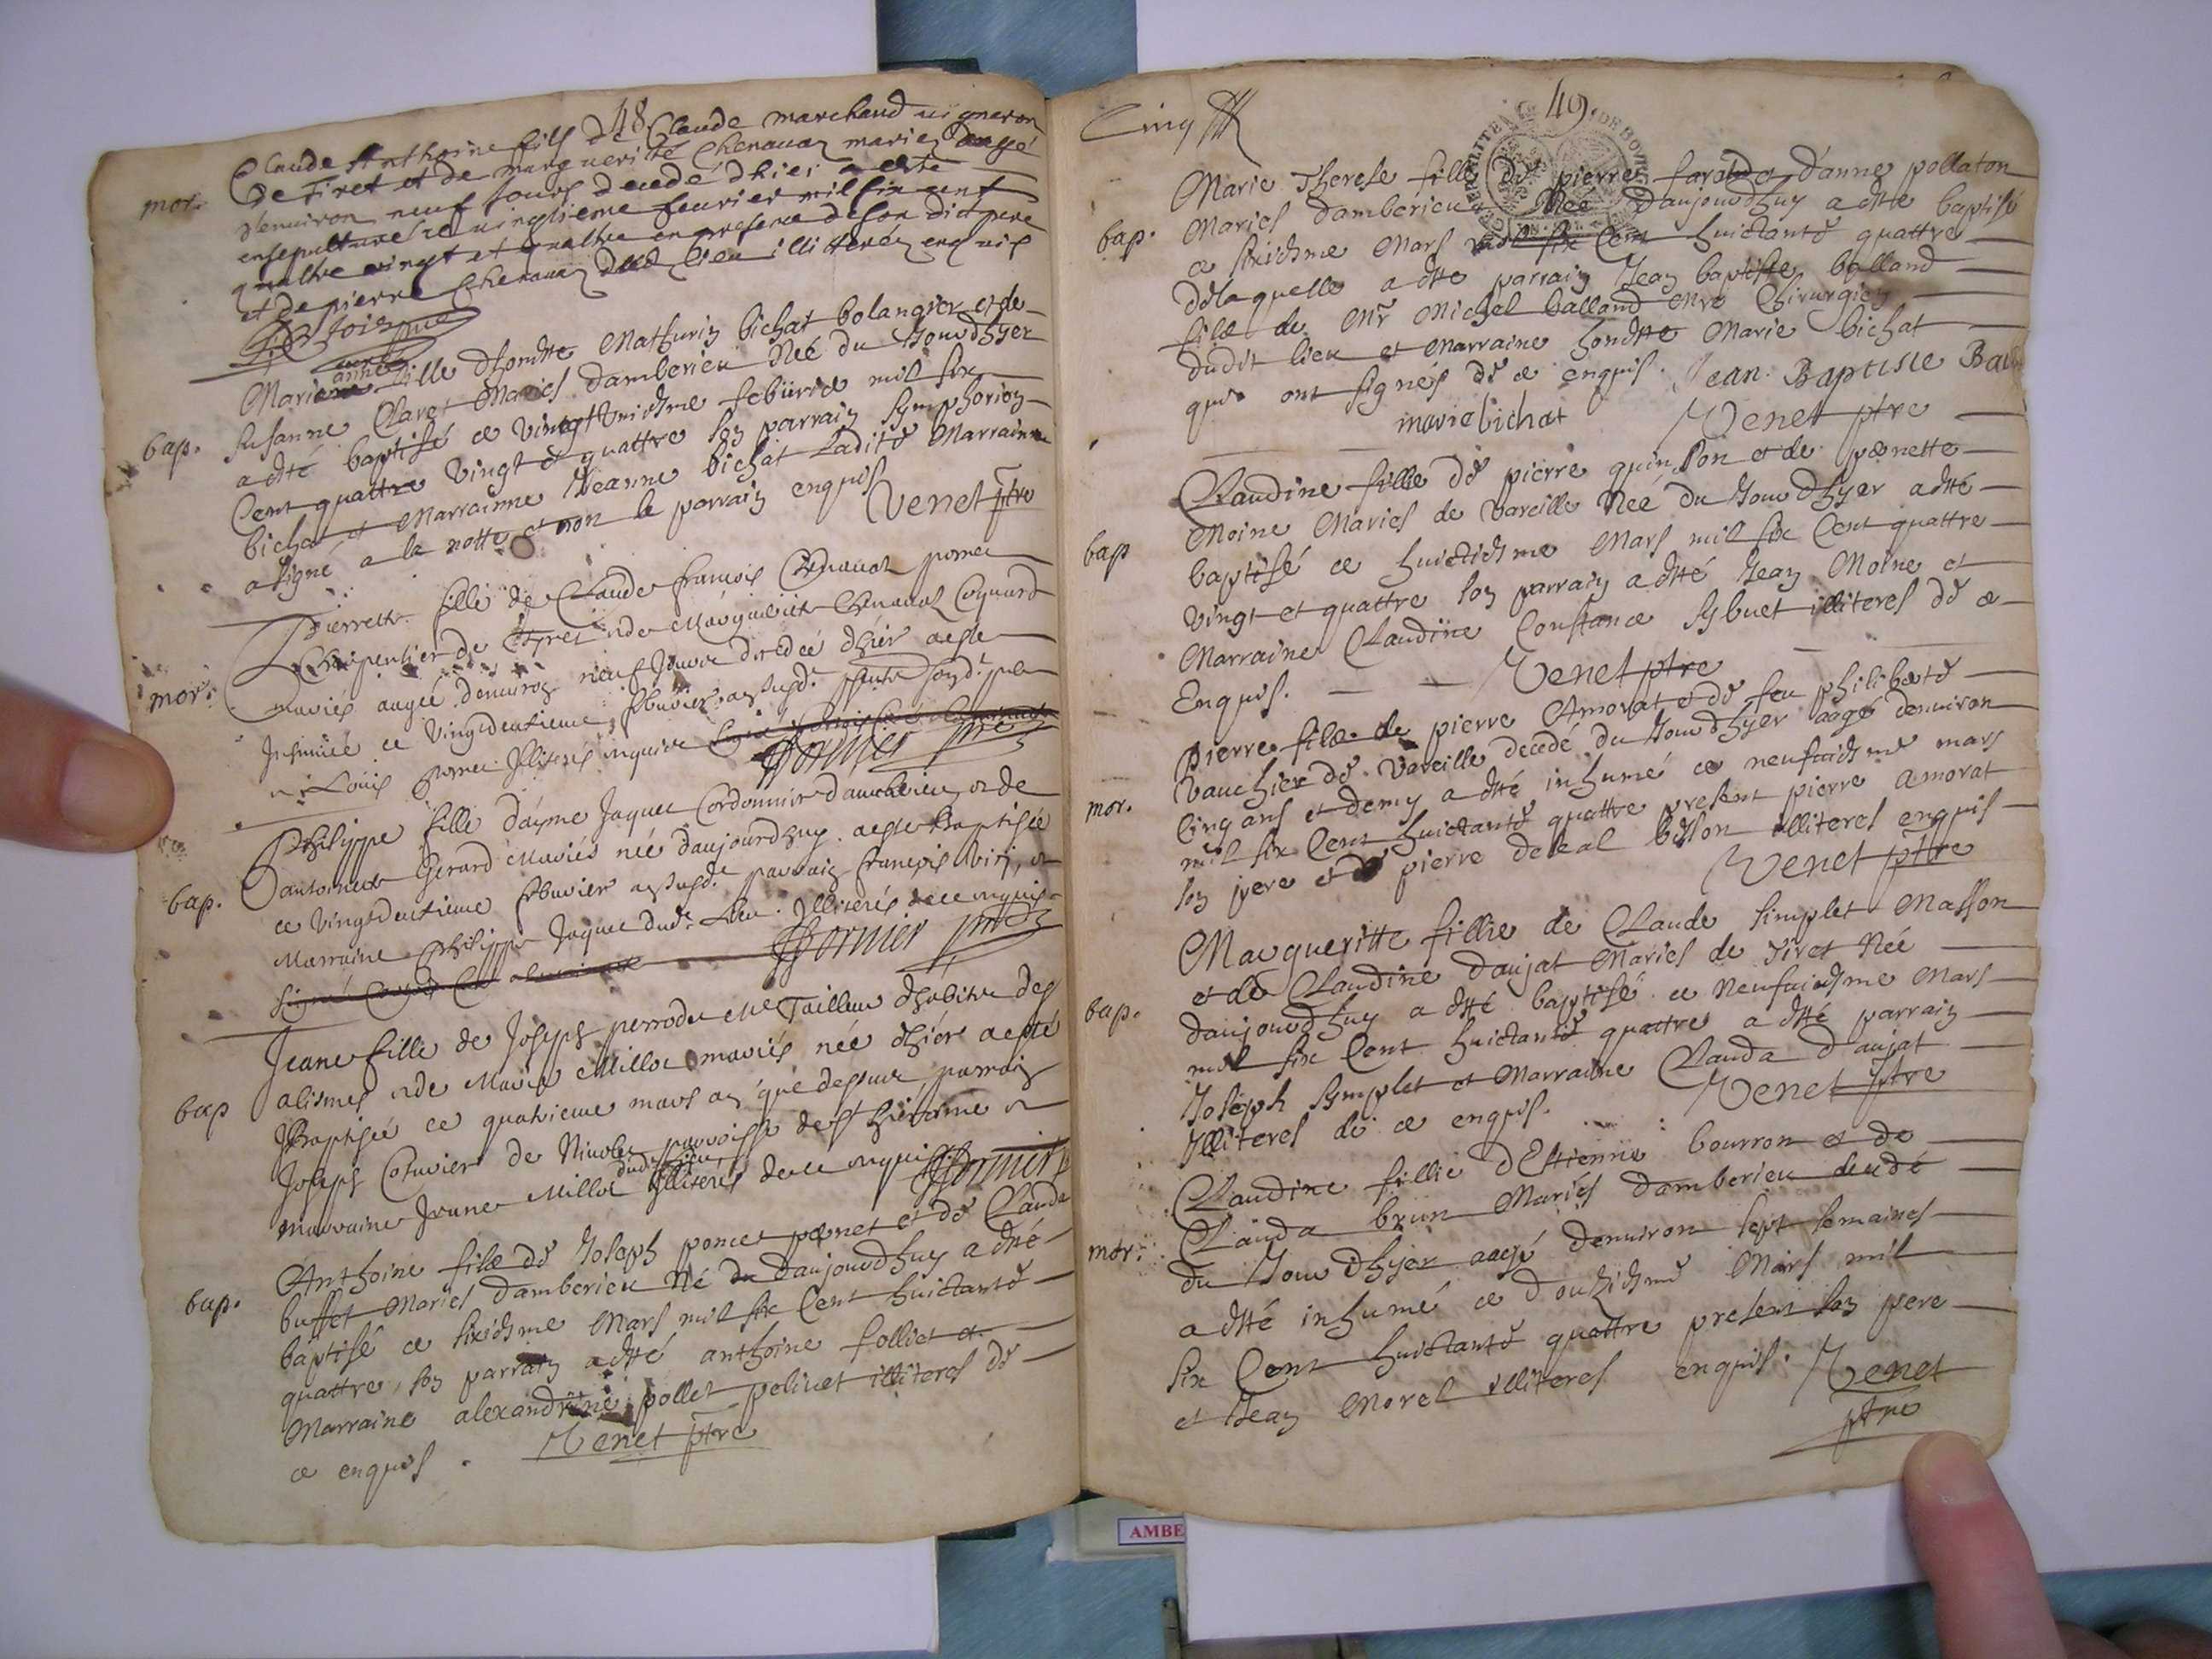 48
mor.
Claude Anthoine fils de Claude marchand vigneron
de Tiret et de marguerite Chenavaz mariez aagé
denviron neuf jours decedé dhier a esté
ensepulturé ce vingtieme feurier mil six cent
quattre vingt et quattre en presence de son dict pere
et de pierre Chenavaz dud lieu illitterez enquis
bap.
Marie anne fille dhontte Mathurin bichat bolangier et de
susanne Claret Mariés damberieu Née du Jourdhyer
a esté baptisé ce vingt Unidsme feburier mil six
Cent quattre vingt et quattre son parrain symphorion
bichat et Marrainne Jeanne bichat Ladite Marrainne
a signé a la notte et non le parrain enquis
Venet ptre
mor.
Pierrette fille de Claude francois Chenavaz
Charpentier de Tiret et de Marguerite Chenavaz Coynard
mariés augée denviron neuf jours decedée dhier aeste
Inhumée ce vingtdeuxieme febuvier
et Louis Illiterés enquis
Fornier ptre
bap.
Philippe fille dayme Jaques Cordonnier damberieu et de
antoinette Gerard Mariés née daujourdhuy aeste Baptisée
ce vingtdeuxieme febuvier parrain francois
Marraine Philippe Jaques dud. Lieu Illiterés de ce enquis
Fornier ptre
bap
Jeane fille de Joseph perrodet Me Tailleur dhabits des
alismes et de Marie Millot mariés née dhier aesté
Baptisée ce quatrieme mars an que dessus parrain
Joseph Cotuvier de parroisse de st hierosme et
marraine Jeane Millot dud. Lieu Illiterés de ce enquis
Fornier p
bap.
Anthoine filz de Joseph poncet et de Clauda
buffet Mariés damberieu Né daujourdhuy a esté
baptisé ce sixidsme Mars mil six Cent huictante
quattre, son parrain a esté anthoine folliet et
Marraine alexandrine pollet illiteres de
ce enquis.
Venet ptre
Cinq
49
bap.
Marie Therese fille de pierre et d'anne pollaton
Mariés damberieu Née Daujourdhuy a esté baptisé
ce sixidsme Mars mil six Cent huictante quattre
de laquelle a esté parrain Jean baptiste balland
filz de Mr Michel balland Mre Chirurgien
dudit lieu et Marraine hontte Marie bichat
qui ont signés de ce enquis.
Jean Baptisle Ball
marie bichat
Venet ptre
bap
Claudine fillie de pierre quinson et de pernette
Moine Mariés de Vareille Née du Jour Dhyer a esté
baptisé ce huictidsme Mars mil six Cent quattre
Vingt et quattre son parrain a esté Jean Moine et
Marraine Claudine Constance sybuet illiteres de ce
Enquis.
Venet ptre
mor.
pierre filz de pierre Amorat et de feu philiberte
Vauchier de Vareille decedé du Jour Dhyer aagé denviron
cinq ans et demy a esté inhumé ce neufuidsme mars
mil six Cent huictante quattre present pierre amorat
son pere et de pierre illiteres enquis
Venet ptre
bap.
Marguerite fillie de Claude simplet Masson
et de Claudine daujat Mariés de Tiret Née
daujourdhuy a esté baptisé ce Neufuidsme Mars
mil six Cent huictante quattre a esté parrain
Joseph symplet et Marraine Clauda daujat
Illiteres de ce enquis.
Venet ptre
mor.
Claudine fillie d'Estienne bourron et de
Clauda brun Mariés damberieu decedé
du Jour Dhyer aagé denviron sept semaines
a esté inhumé ce douzidsme Mars mil
six Cent huictante quattre present son pere
et Jean Morel illiteres enquis.
Venet
ptre
AMBE